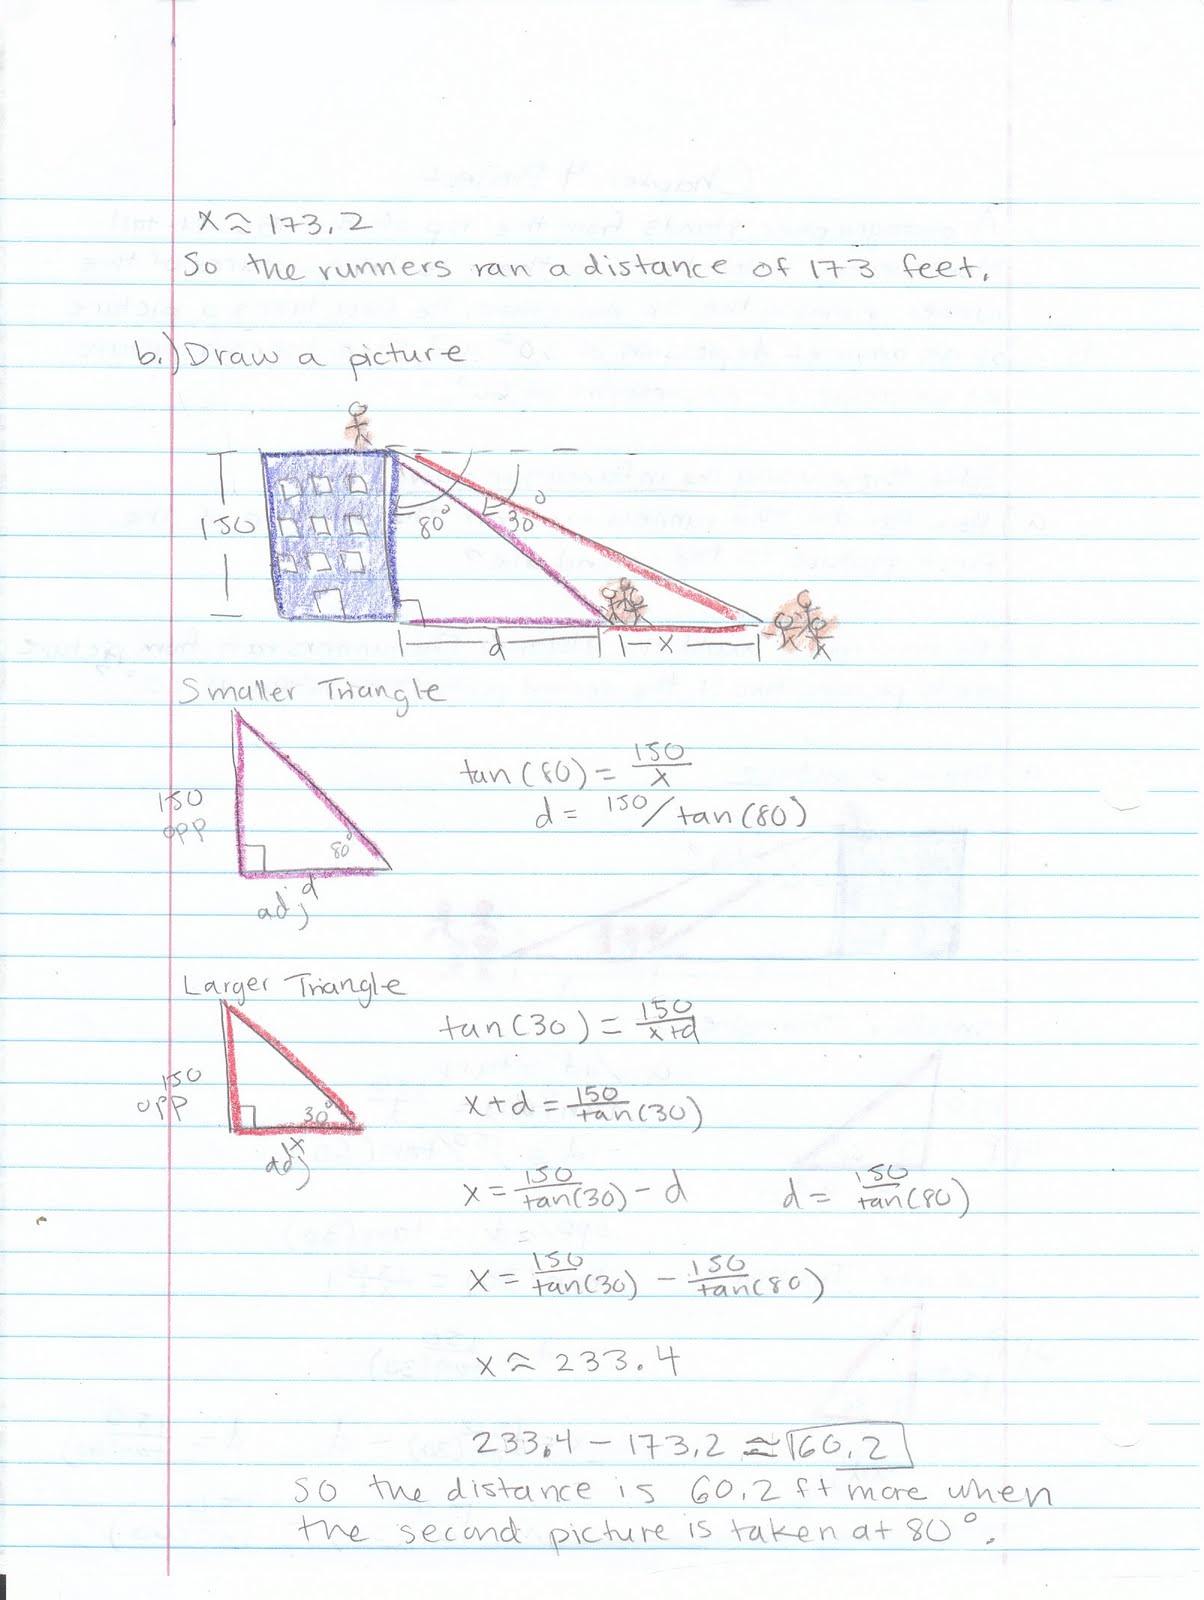 x ≈ 173.2
So the runners ran a distance of 173 feet.
b.) Draw a picture
150
80°
30°
d
x
Smaller Triangle
tan(80) = 150/x
d = 150/tan(80)
150
opp
80°
d
adj
Larger Triangle
tan(30) = 150/x+d
150
opp
30°
x
adj
x+d = 150/tan(30)
x = 150/tan(30) - d d = 150/tan(80)
x = 150/tan(30) - 150/tan(80)
x ≈ 233.4
233.4 - 173.2 ≈ 60.2
So the distance is 60.2 ft more when
the second picture is taken at 80°.